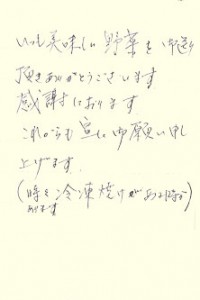 いつも美味しい野菜を御送り
頂きありがとうございます
感謝しております
これからも宜しく御願い申し
上げます。
(時々冷凍焼けがあ
ります